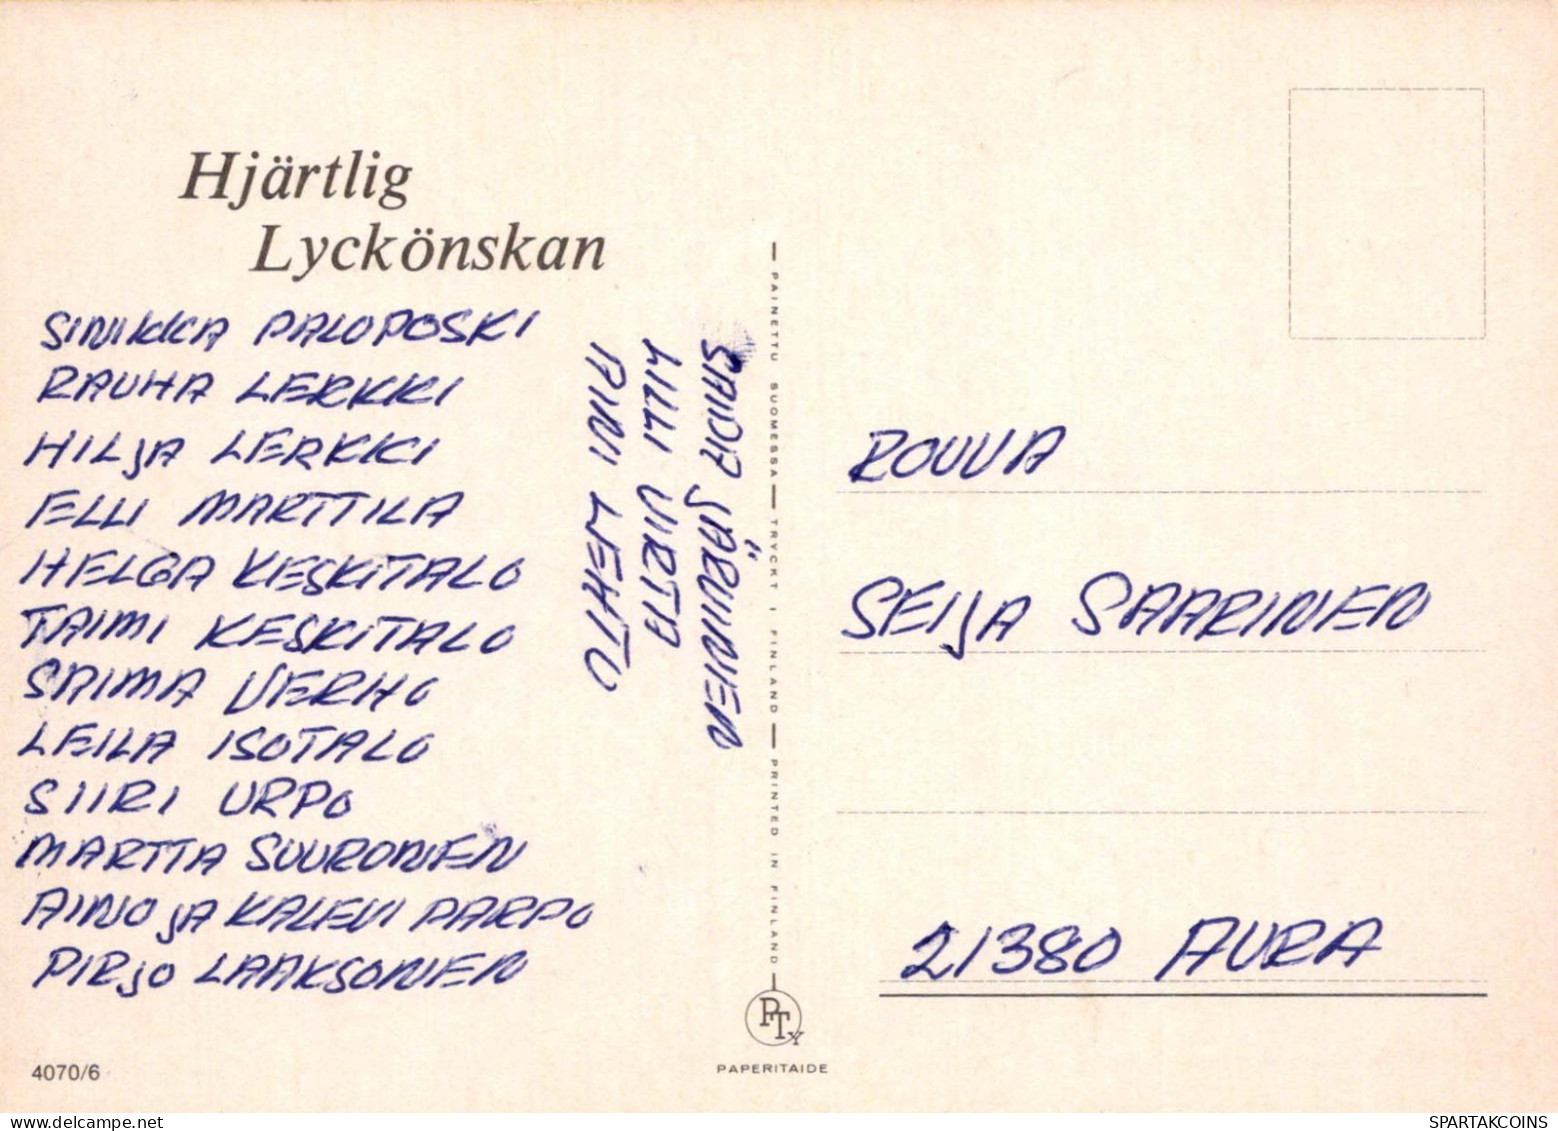 Hjärtlig
Lyckönskan
SINIKKA PALOPOSKI
RAUHA LERKKI
HILJA LERKKI
ELLI MARTTILA
HELGA KESKITALO
TAIMI KESKITALO
SAIMA VERHO
LEILA ISOTALO
SIIRI URPO
MARTTA SUURONEN
AINO JA KALEVI PARPO
PIRJO LAAKSONEN
AINI LEHTO
MILLI VIRTA
SAIMA JÄRVINEN
4070/6
PAINETTU SUOMESSA — TRYCKT I FINLAND — PRINTED IN FINLAND
PTy
PAPERITAIDE
ROUVA
SEIJA SAARINEN
21380 AURA
SPARTAKCOINS